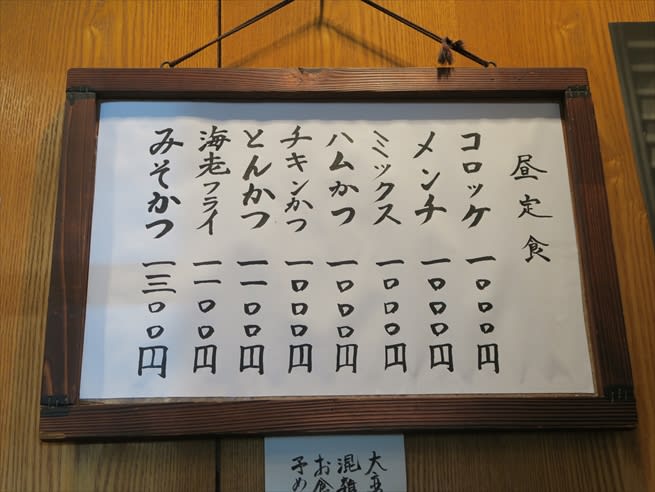 昼定食
コロッケ 一〇〇〇円
メンチ 一〇〇〇円
ミックス 一〇〇〇円
ハムかつ 一〇〇〇円
チキンかつ 一〇〇〇円
とんかつ 一一〇〇円
海老フライ 一一〇〇円
みそかつ 一三〇〇円
大変
混雑
お食
予め